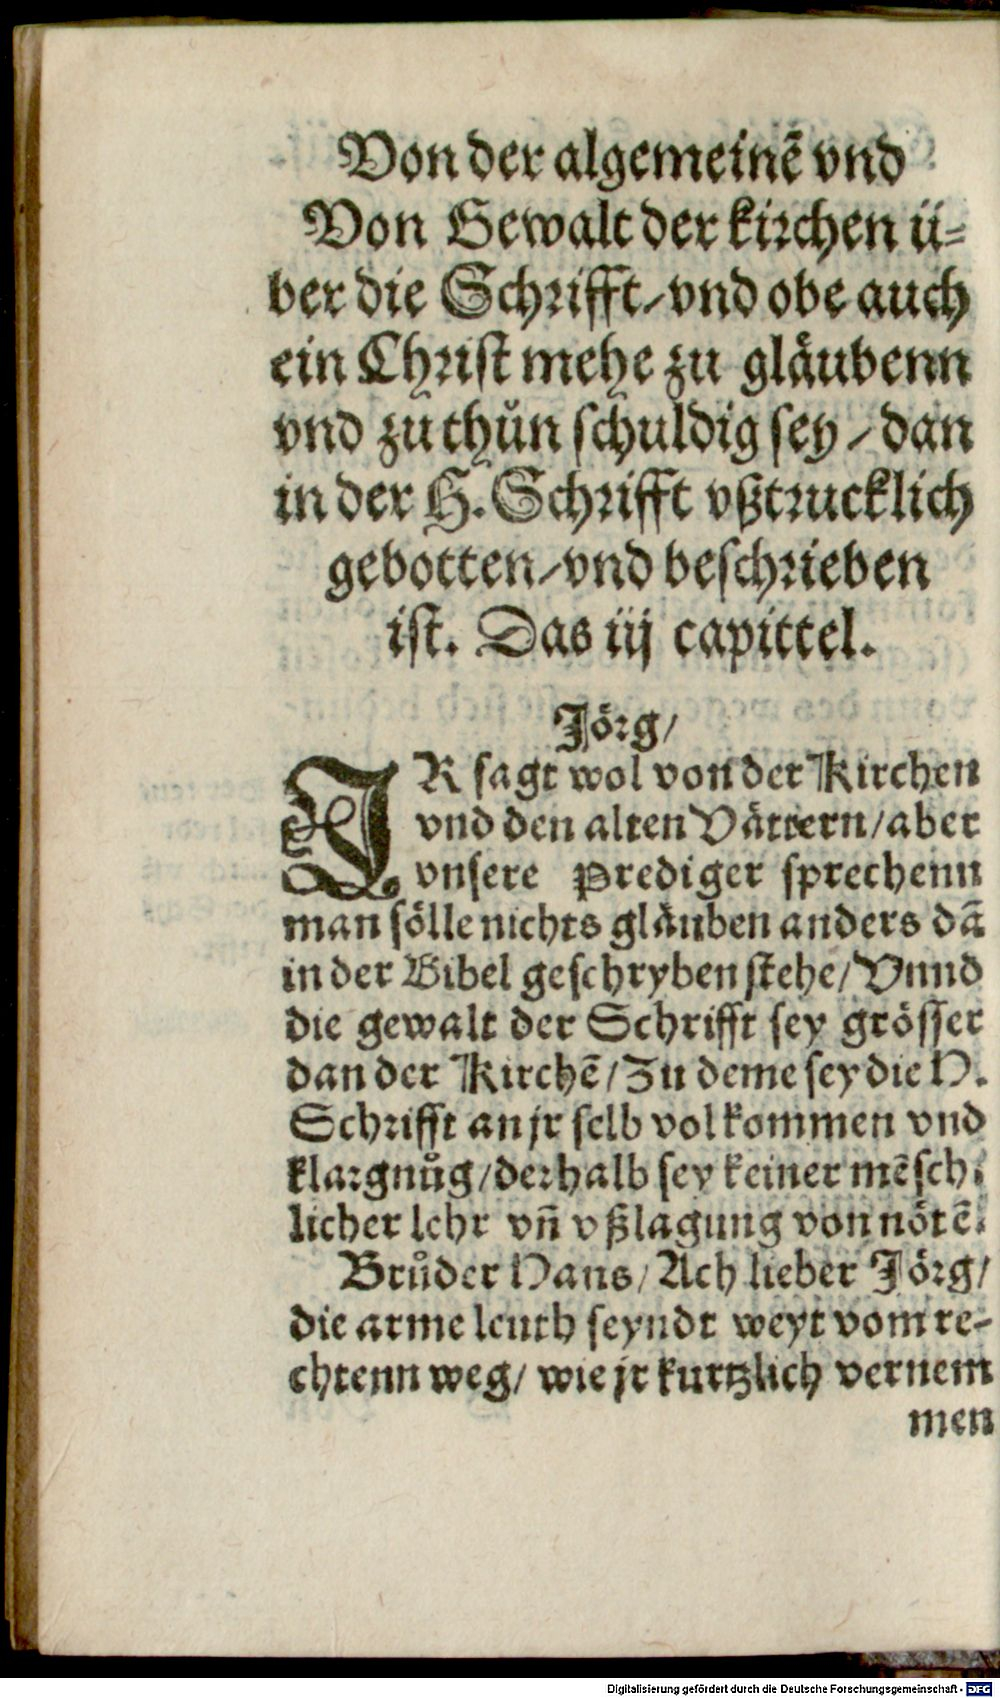 Von der algemeinẽ vnd
Von Gewalt der kirchen ü-
ber die Schrifft/vnd obe auch
ein Christ mehe zu gläubenn
vnd zu thůn schuldig sey/dan
in der H. Schrifft vßtrucklich
gebotten/vnd beschrieben
ist. Das iij capittel.
Jörg/
IR sagt wol von der Kirchen
vnd den alten Vättern/aber
vnsere Prediger sprechenn
man sölle nichts gläuben anders dã
in der Bibel geschryben stehe/Vnnd
die gewalt der Schrifft sey grösser
dan der Kirchẽ/Zu deme sey die H.
Schrifft an jr selb volkommen vnd
klargnůg/derhalb sey keiner mẽsch-
licher lehr vñ vßlagung von nötẽ.
Brůder Hans/Ach lieber Jörg/
die arme leuth seyndt weyt vom re-
chtenn weg/wie jr kurtzlich vernem
men
Digitalisierung gefördert durch die Deutsche Forschungsgemeinschaft - DFG